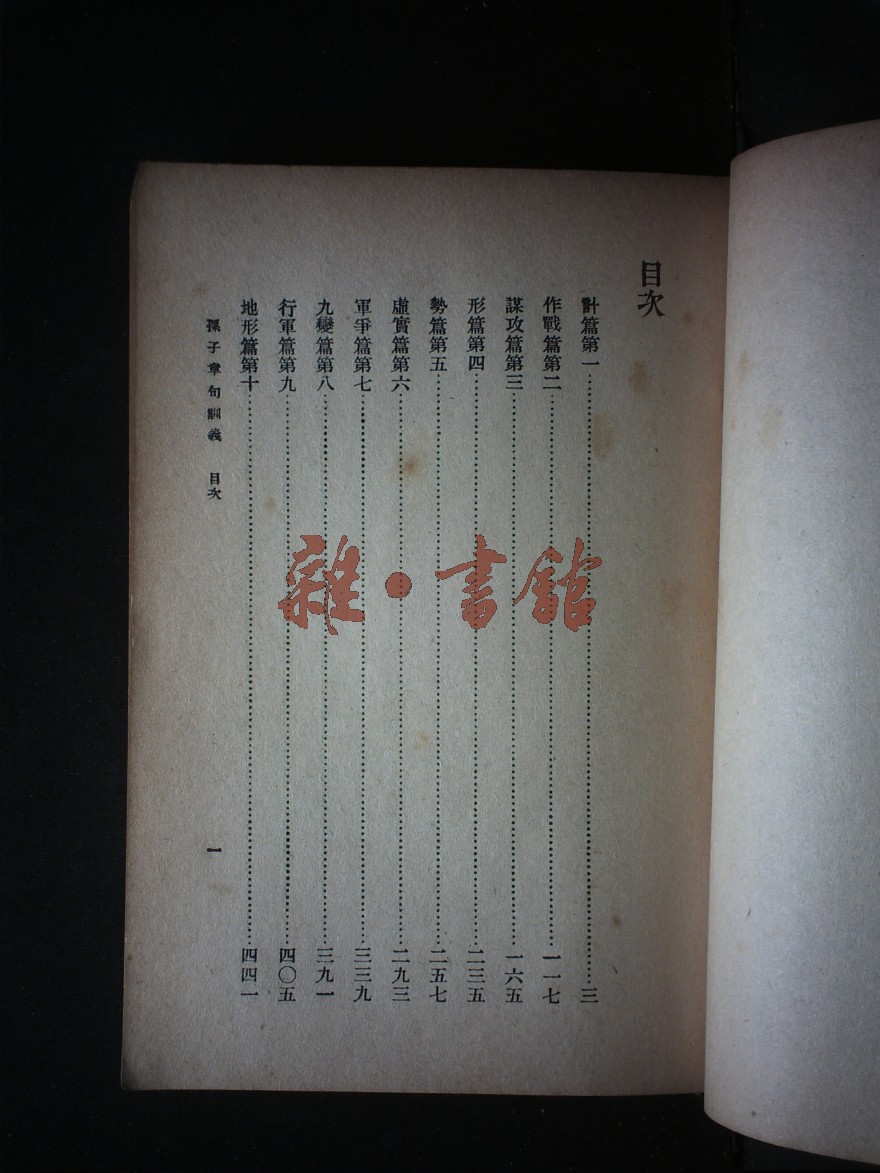 目次
計篇第一……三
作戰篇第二……一一七
謀攻篇第三……一六五
形篇第四……二三五
勢篇第五……二五七
虛實篇第六……二九三
軍爭篇第七……三三九
九變篇第八……三九一
行軍篇第九……四〇五
地形篇第十……四四一
孫子章句訓義 目次 一
雜·書館